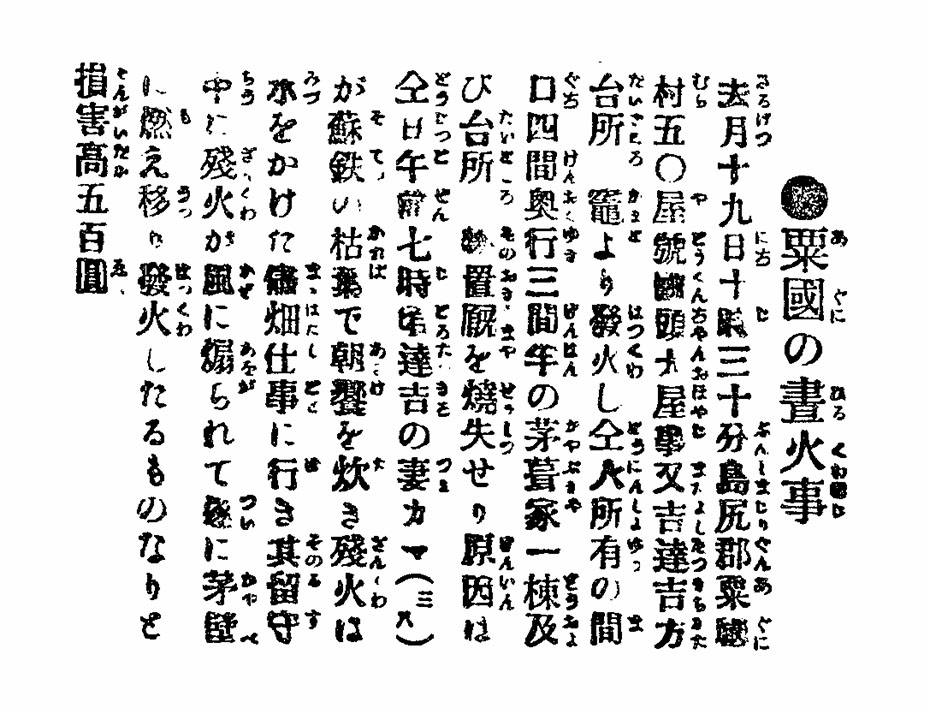 ●粟國の晝火事
去月十九日十時三十分島尻郡粟國
村五〇屋號國頭大屋事又吉達吉方
台所竈より發火し仝人所有の間
口四間奥行三間半の茅葺家一棟及
び台所物置厩を燒失せり原因は
仝日午前七時頃達吉の妻カマ(三八)
が蘇鉄の枯葉で朝饗を炊き殘火は
水をかけた儘畑仕事に行き其留守
中に殘火が風に煽られて遂に茅壁
に燃え移り發火したるものなりと
損害高五百圓